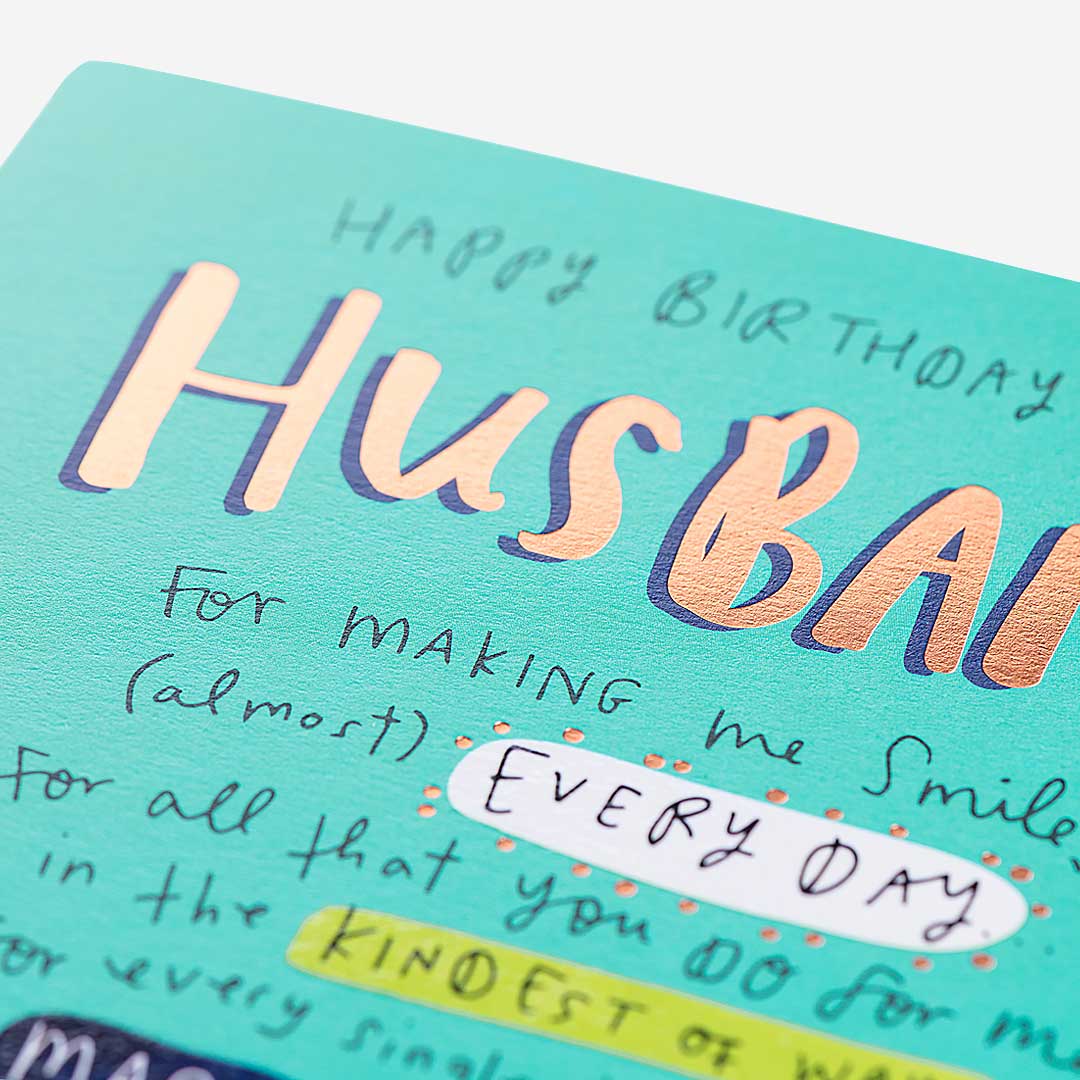 HAPPY BIRTHDAY
HUSBAN
For MAKING me Smile
(almost) EVERY DAY.
For all that you DO for me
in the KINDEST OF WAY
for every single
MAG